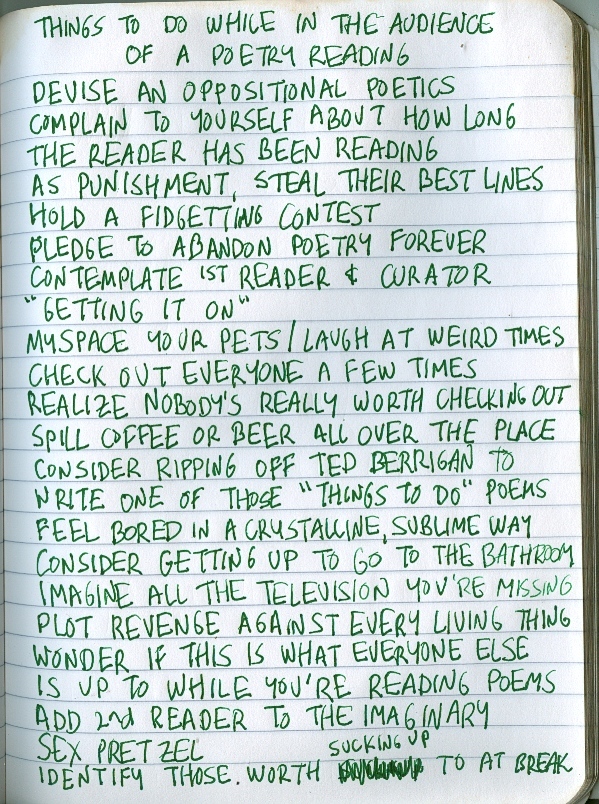 THINGS TO DO WHILE IN THE AUDIENCE
OF A POETRY READING
DEVISE AN OPPOSITIONAL POETICS
COMPLAIN TO YOURSELF ABOUT HOW LONG
THE READER HAS BEEN READING
AS PUNISHMENT, STEAL THEIR BEST LINES
HOLD A FIDGETTING CONTEST
PLEDGE TO ABANDON POETRY FOREVER
CONTEMPLATE 1ST READER & CURATOR
"GETTING IT ON"
MYSPACE YOUR PETS / LAUGH AT WEIRD TIMES
CHECK OUT EVERYONE A FEW TIMES
REALIZE NOBODY'S REALLY WORTH CHECKING OUT
SPILL COFFEE OR BEER ALL OVER THE PLACE
CONSIDER RIPPING OFF TED BERRIGAN TO
WRITE ONE OF THOSE "THINGS TO DO" POEMS
FEEL BORED IN A CRYSTALLINE, SUBLIME WAY
CONSIDER GETTING UP TO GO TO THE BATHROOM
IMAGINE ALL THE TELEVISION YOU'RE MISSING
PLOT REVENGE AGAINST EVERY LIVING THING
WONDER IF THIS IS WHAT EVERYONE ELSE
IS UP TO WHILE YOU'RE READING POEMS
ADD 2nd READER TO THE IMAGINARY
SEX PRETZEL
IDENTIFY THOSE WORTH SUCKING UP TO AT BREAK